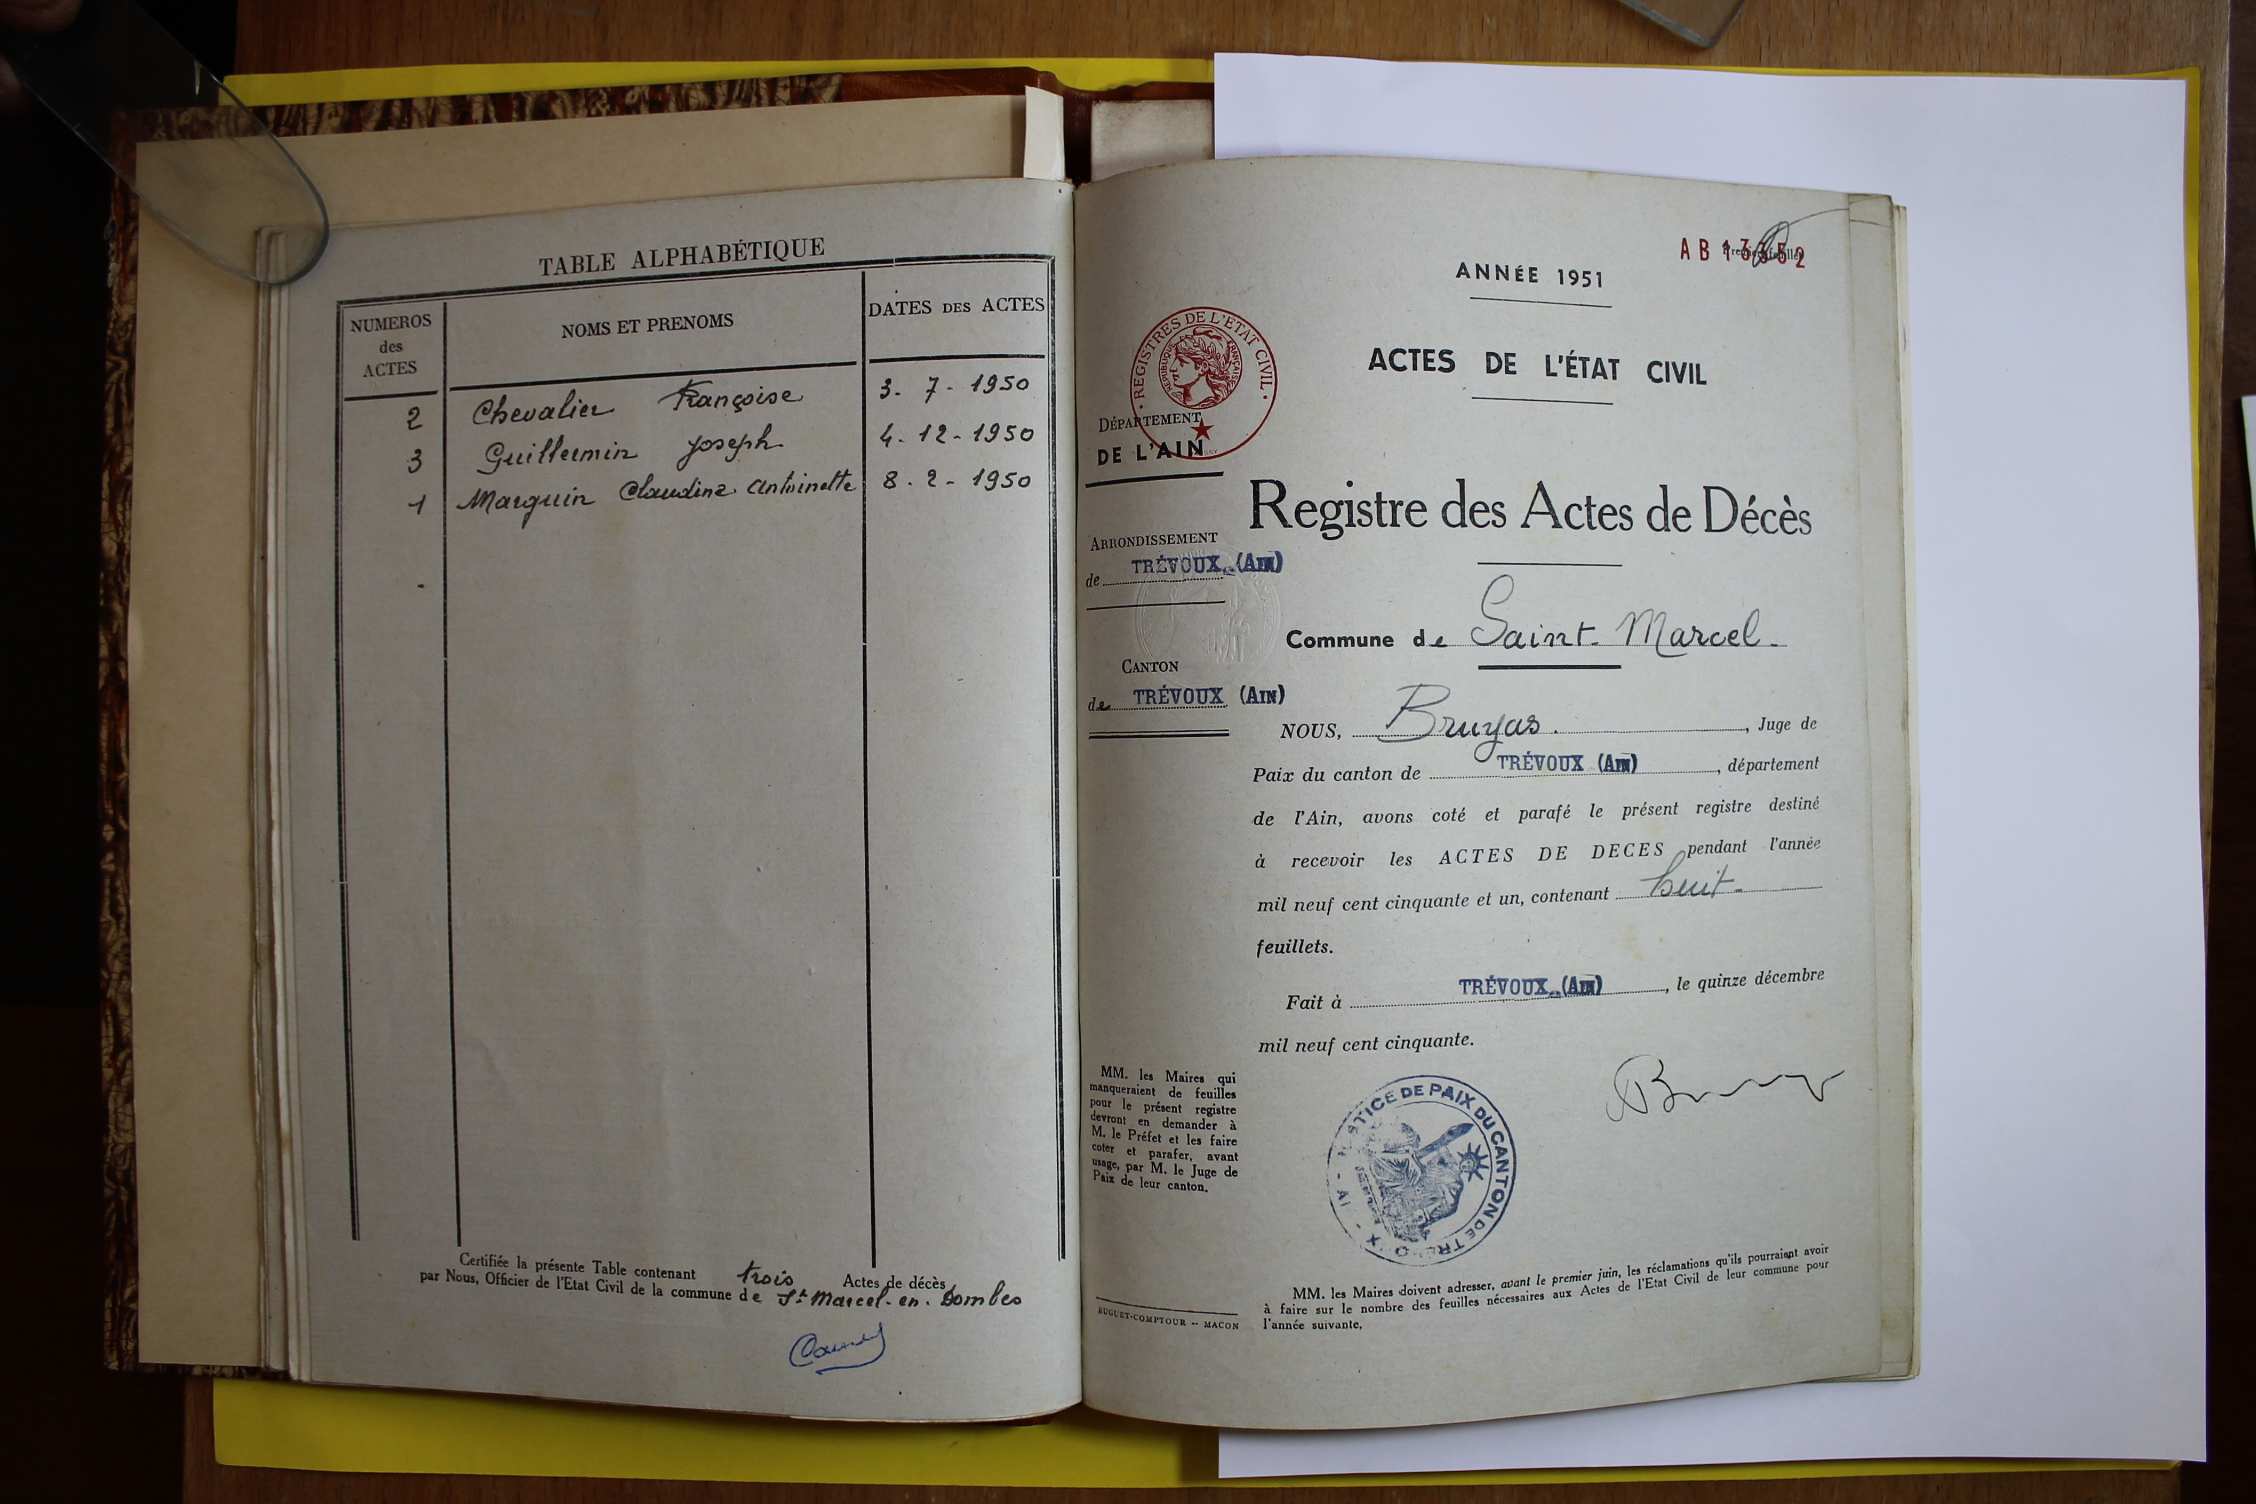 TABLE ALPHABÉTIQUE
NUMEROS
des
ACTES
NOMS ET PRENOMS
DATES DES ACTES
2 Chevalier Françoise 3. 7. 1950
3 Guillermin Joseph 4. 12. 1950
1 Marguin Claudine Antoinette 8. 2. 1950
Certifiée la présente Table contenant trois Actes de décès
par Nous, Officier de l'Etat Civil de la commune de St Marcel-en-Dombes
AB 13352
ANNÉE 1951
ACTES DE L'ÉTAT CIVIL
REGISTRES DE L'ETAT CIVIL
RÉPUBLIQUE FRANÇAISE
DÉPARTEMENT
DE L'AIN
Registre des Actes de Décès
ARRONDISSEMENT
de TRÉVOUX (AIN)
Commune de Saint-Marcel-
CANTON
de TRÉVOUX (AIN)
NOUS, Bruyas, Juge de
Paix du canton de TRÉVOUX (AIN), département
de l'Ain, avons coté et parafé le présent registre destiné
à recevoir les ACTES DE DECES pendant l'année
mil neuf cent cinquante et un, contenant huit
feuillets.
Fait à TRÉVOUX (AIN), le quinze décembre
mil neuf cent cinquante.
MM. les Maires qui
manqueraient de feuilles
pour le présent registre
devront en demander à
M. le Préfet et les faire
coter et parafer, avant
usage, par M. le Juge de
Paix de leur canton.
JUSTICE DE PAIX DU CANTON DE TREVOUX
MM. les Maires doivent adresser, avant le premier juin, les réclamations qu'ils pourraient avoir
à faire sur le nombre des feuilles nécessaires aux Actes de l'Etat Civil de leur commune pour
l'année suivante.
BUGUET-COMPTOUR -- MACON